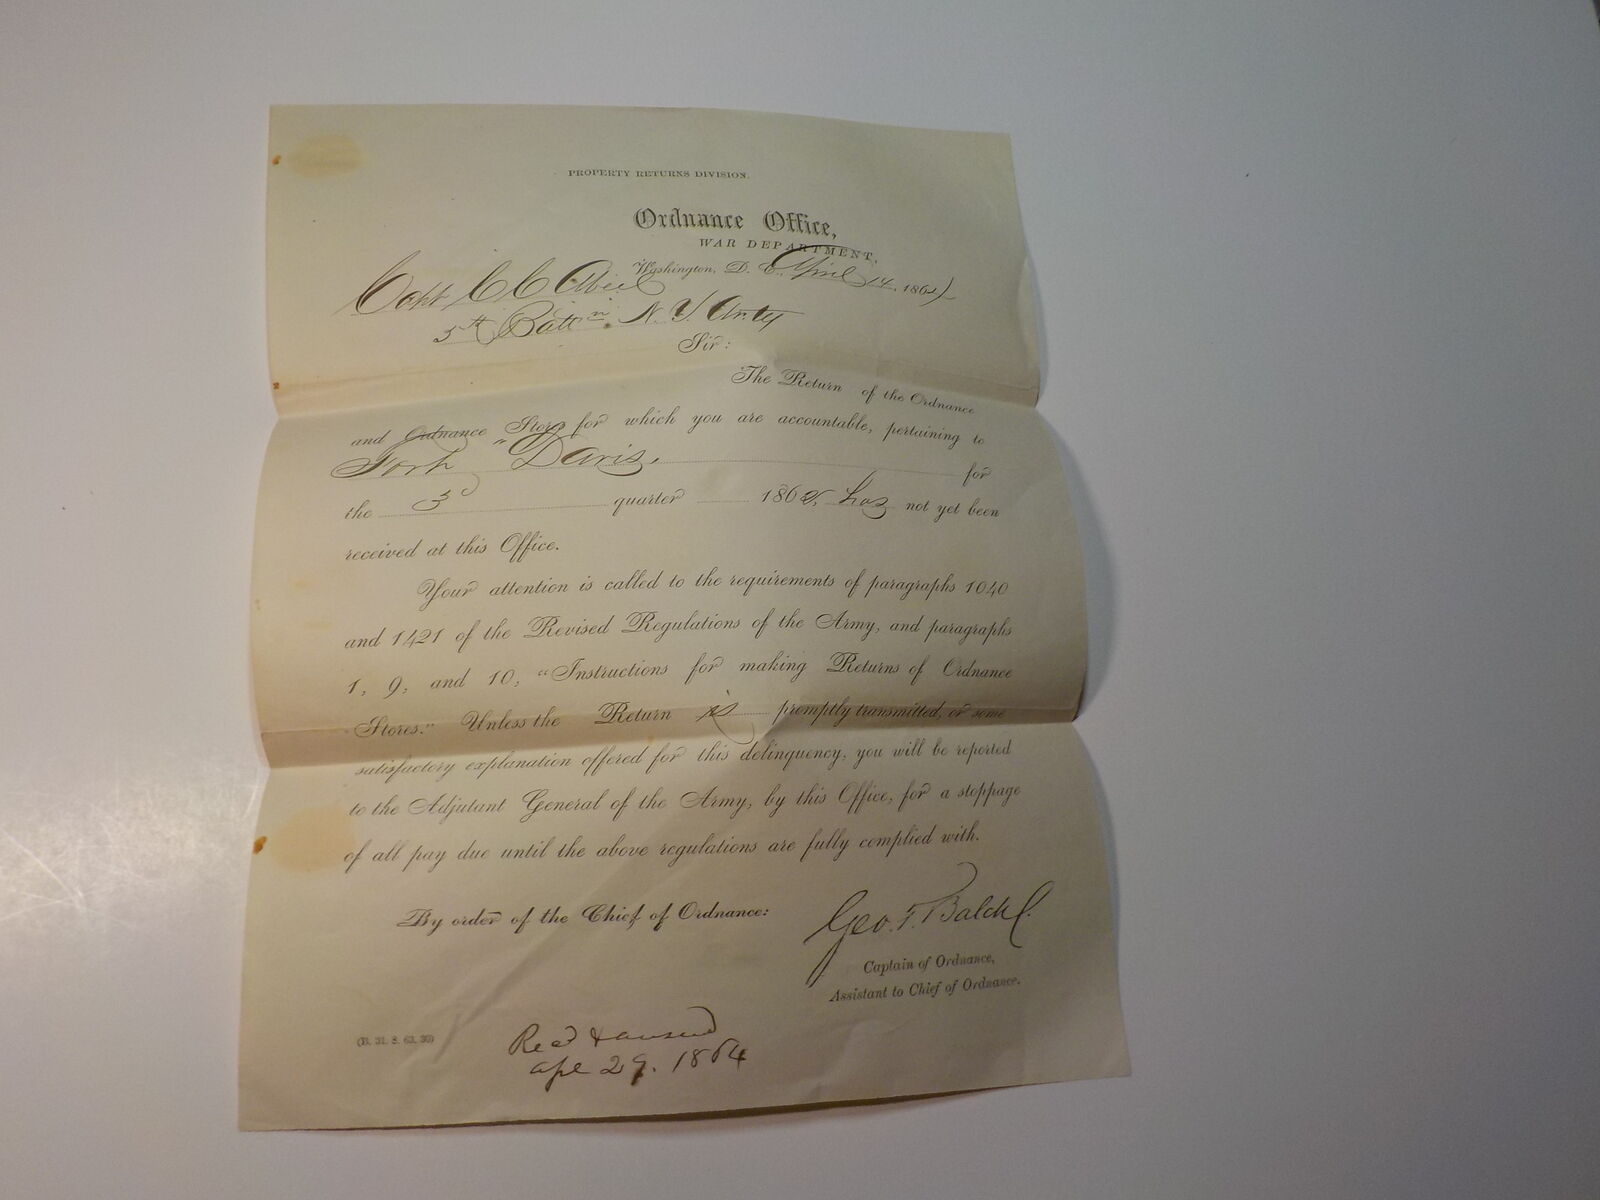 PROPERTY RETURNS DIVISION.
Ordnance Office,
WAR DEPARTMENT,
Washington, D. C. April 14, 1864
Capt C C Abell
5th Batt'n N. Y Arty
Sir:
The Return of the Ordnance
and Ordnance Stores for which you are accountable, pertaining to
Fort "Davis, for
the 3d quarter 1862, has not yet been
received at this Office.
Your attention is called to the requirements of paragraphs 1040
and 1421 of the Revised Regulations of the Army, and paragraphs
1, 9, and 10, "Instructions for making Returns of Ordnance
Stores." Unless the Return is promptly transmitted, or some
satisfactory explanation offered for this delinquency, you will be reported
to the Adjutant General of the Army, by this Office, for a stoppage
of all pay due until the above regulations are fully complied with.
By order of the Chief of Ordnance:
Geo. T. Balch
Captain of Ordnance,
Assistant to Chief of Ordnance.
(B. 31. 8. 63. 30)
Recd & ansend
Apl 29. 1864